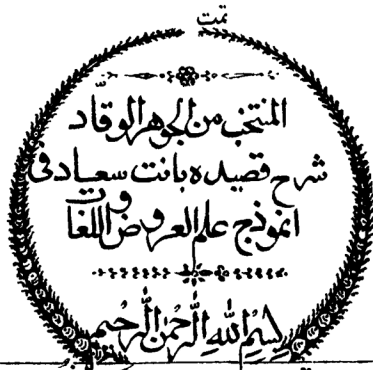 تمت
المنتخب من الجوهر الوقّاد
شرح قصيده بانت سعاد فى
انموذج علم العروض و اللغات
بِسْمِ اللهِ الرَّحْمٰنِ الرَّحِيْمِ